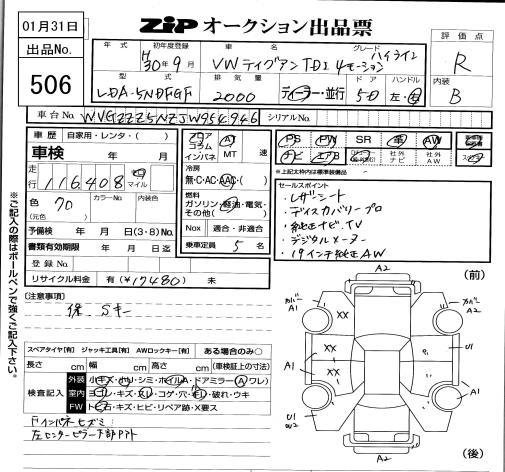 01月31日
出品No.
506
ZiP オークション出品票
評価点
R
内装
B
年式 初年度登録 車名 グレード
H30年9月 VWティグアンTDI 4モーション ハイライン
型式 排気量 ドア ハンドル
LDA-5NDFGF 2000 ディーラー・並行 5D 左・右
車台No. WVGZZZ5NZJW954946 シリアルNo.
車歴 自家用・レンタ・( )
車検 年 月
走行 116,408 km マイル
色 70 カラーNo. 内装色
(元色)
予備検 年 月 日(3・8)No.
書類有効期限 年 月 日迄
登録No.
リサイクル料金 有(¥17480) 未
フロア コラム インパネ AT MT 速
冷房
無・C・AC・AAC・( )
燃料
ガソリン・軽油・電気・その他( )
Nox 適合・非適合
乗車定員 5 名
PS PW SR 革 AW
ナビ エアB 社外ナビ 社外AW
※上記太枠内は標準装備品
セールスポイント
・レザーシート
・ディスカバリープロ
・純正ナビ.TV
・デジタルメーター
・19インチ純正AW
※ご記入の際はボールペンで強くご記入下さい。
注意事項
保、Sキー
スペアタイヤ[有] ジャッキ工具[有] AWロックキー[有] ある場合のみ○
長さ cm 幅 cm 高さ cm (車検証上の寸法)
検査記入
外装 小キズ・小U・シミ・ホイルA・ドアミラー(A ワレ)
室内 ヨゴレ・キズ・スレ・コゲ・穴・・破れ・ウキ
FW トビ石・キズ・ヒビ・リペア跡・X要ス
Fインパネヒズミ
左センターピラー下部アト
(前)
A2
カバー A1
カバー A2
XX
XX
XX
U1
A1
A1
U1
W2
A2
(後)